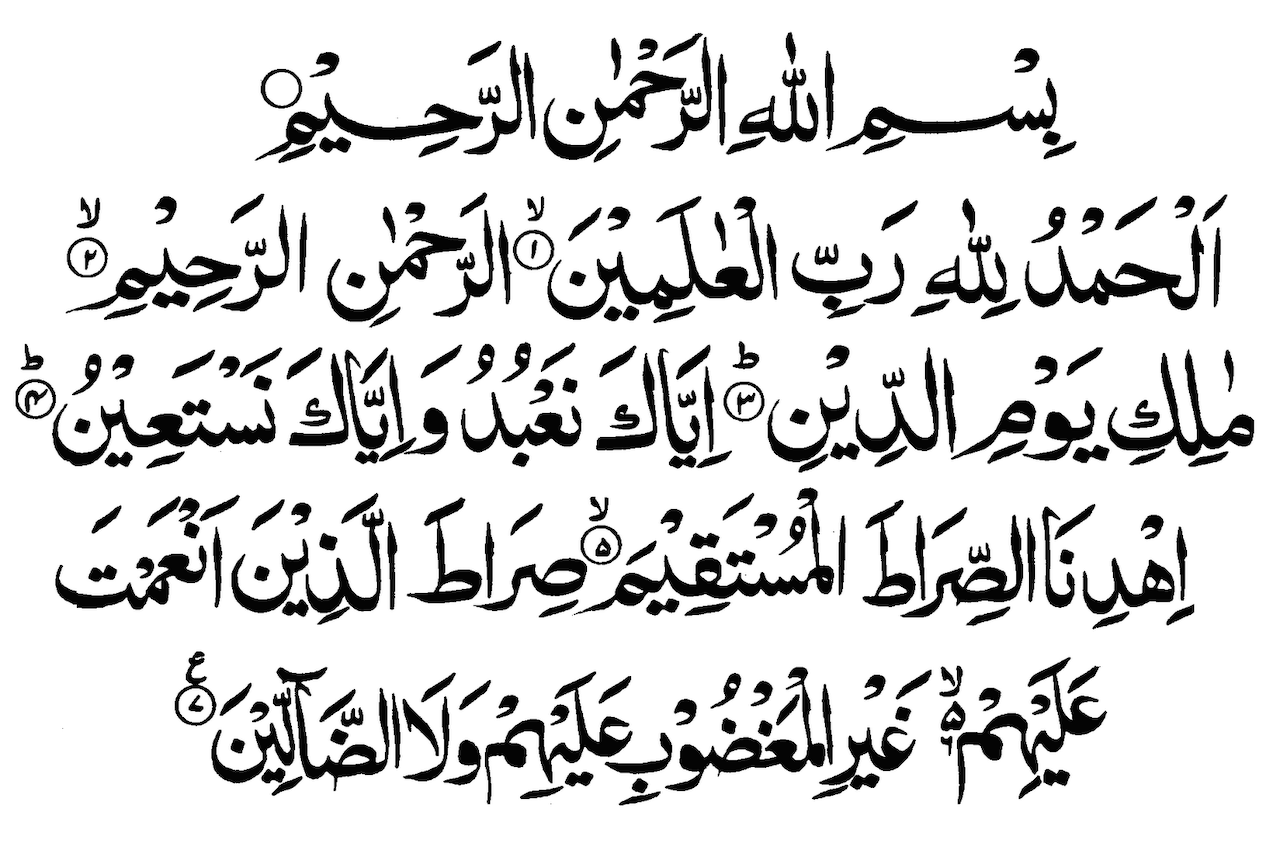 بِسْمِ اللهِ الرَّحْمٰنِ الرَّحِيْمِ ○
اَلْحَمْدُ لِلّٰهِ رَبِّ الْعٰلَمِيْنَ ۙ﴿۱﴾ الرَّحْمٰنِ الرَّحِيْمِ ۙ﴿۲﴾
مٰلِكِ يَوْمِ الدِّيْنِ ؕ﴿۳﴾ اِيَّاكَ نَعْبُدُ وَ اِيَّاكَ نَسْتَعِيْنُ ؕ﴿۴﴾
اِهْدِنَا الصِّرَاطَ الْمُسْتَقِيْمَ ۙ﴿۵﴾ صِرَاطَ الَّذِيْنَ اَنْعَمْتَ
عَلَيْهِمْ ۙ۵۶ غَيْرِ الْمَغْضُوْبِ عَلَيْهِمْ وَلَا الضَّآلِّيْنَ ﴿۷﴾ ع